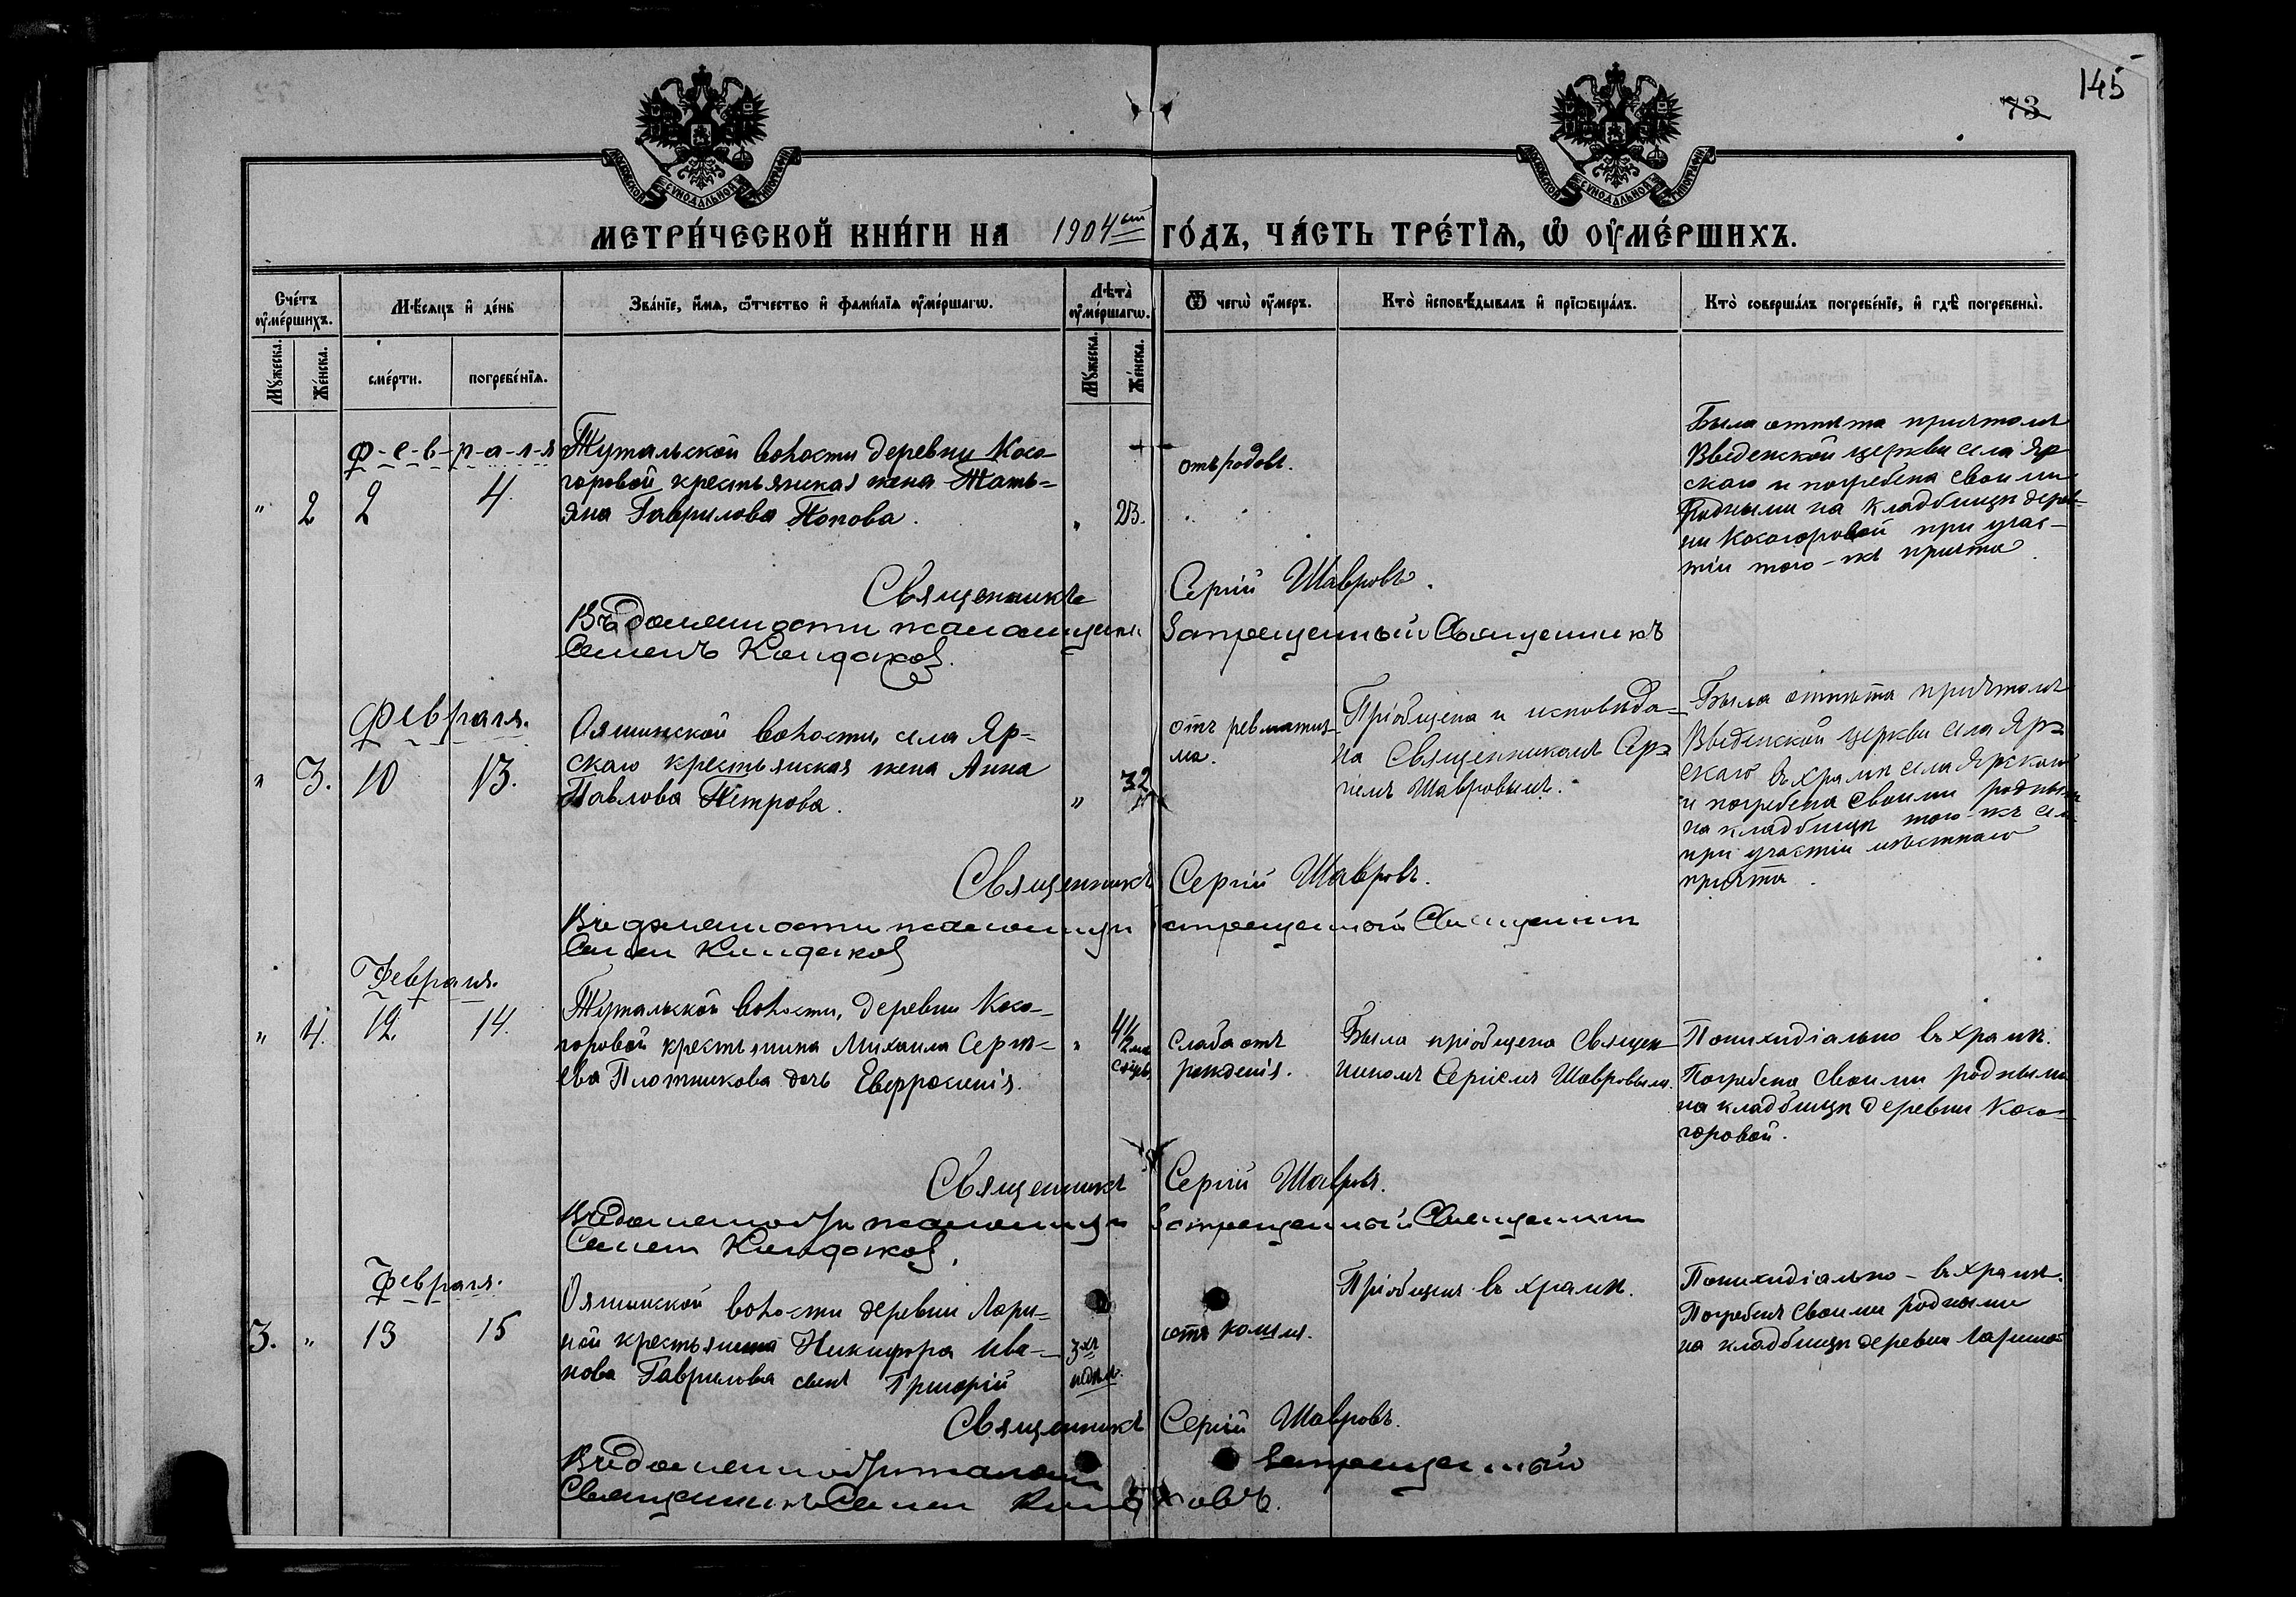 145
73
МОСКОВСКОЙ СУНОДАЛЬНОЙ ТИПОГРАФІИ
МОСКОВСКОЙ СУНОДАЛЬНОЙ ТИПОГРАФІИ
МЕТРИ́ЧЕСКОЙ КНИ́ГИ НА 1904ый ГО́ДЪ, ЧА́СТЬ ТРЕ́ТІѦ, Ѡ҆ ОУ҆МЕ́РШИХЪ.
Сче́тъ оу҆ме́ршихъ.
Мꙋ́жеска.
Же́нска.
Мѣ́сяцъ и҆ де́нь
сме́рти.
погребе́нїѧ.
Зва́нїе, и҆́мѧ, ѻ҆́тчество и҆ фами́лїѧ оу҆ме́ршагѡ.
Лѣ́та оу҆ме́ршагѡ.
Мꙋ́жеска.
Же́нска.
Ѿ чегѡ̀ оу҆́меръ.
Кто̀ и҆сповѣ́дывалъ и҆ прїѡбща́лъ.
Кто̀ соверша́лъ погребе́нїе, и҆ гдѣ̀ погребены̀.
Ф-е-в-р-а-л-я
" 2 2 4.
Тутальской волости деревни Косо-
горовой крестьянская жена Тать-
яна Гаврилова Попова.
" 23.
отъ родовъ.
Была отпѣта причтомъ
Введенской церкви села Яр-
скаго и погребена своими
родными на кладбищѣ дерев-
ни Косогоровой при учас-
тіи того-же причта.
Священникъ Сергій Шавровъ.
Въ должности псаломщика запрещенный Священникъ
Семенъ Кондаковъ.
Февраля.
" 3. 10 13.
Ояшинской волости, села Яр-
скаго крестьянская жена Анна
Павлова Петрова.
" 32
отъ ревматиз-
ма.
Пріобщена и исповѣда-
на Священникомъ Сер-
гіемъ Шавровымъ.
Была отпѣта причтомъ
Введенской церкви села Яр-
скаго въ храмѣ села Ярскаго
и погребена своими родными
на кладбищѣ того-же села
при участіи мѣстнаго
причта.
Священникъ Сергій Шавровъ.
Въ должности псаломщика запрещенный Священникъ
Семен Кондаков
Февраля.
" 4. 12. 14.
Тутальской волости, деревни Косо-
горовой крестьянина Михаила Серге-
ева Плотникова дочь Евфросинія.
" 4½ мѣ-
сяцев.
слаба отъ
рожденія.
Была пріобщена Священ-
никомъ Сергіемъ Шавровымъ.
Панихидіально въ храмѣ.
Погребена своими родными
на кладбищѣ деревни Косо-
горовой.
Священникъ Сергій Шавровъ.
Въ должности псаломщика запрещенный Священник
Семен Кондаков.
Февраля.
3. " 13 15
Ояшинской волости деревни Лари-
ной крестьянина Никифора Ива-
нова Гаврилова сынъ Григорій
3хъ
недѣль.
отъ кашля.
Пріобщенъ въ храмѣ.
Панихидіально - въ храмѣ.
Погребенъ своими родными
на кладбищѣ деревни Лариной
Священникъ Сергій Шавровъ.
Въ должности запрещенный
Священникъ Семен Кондаковъ.